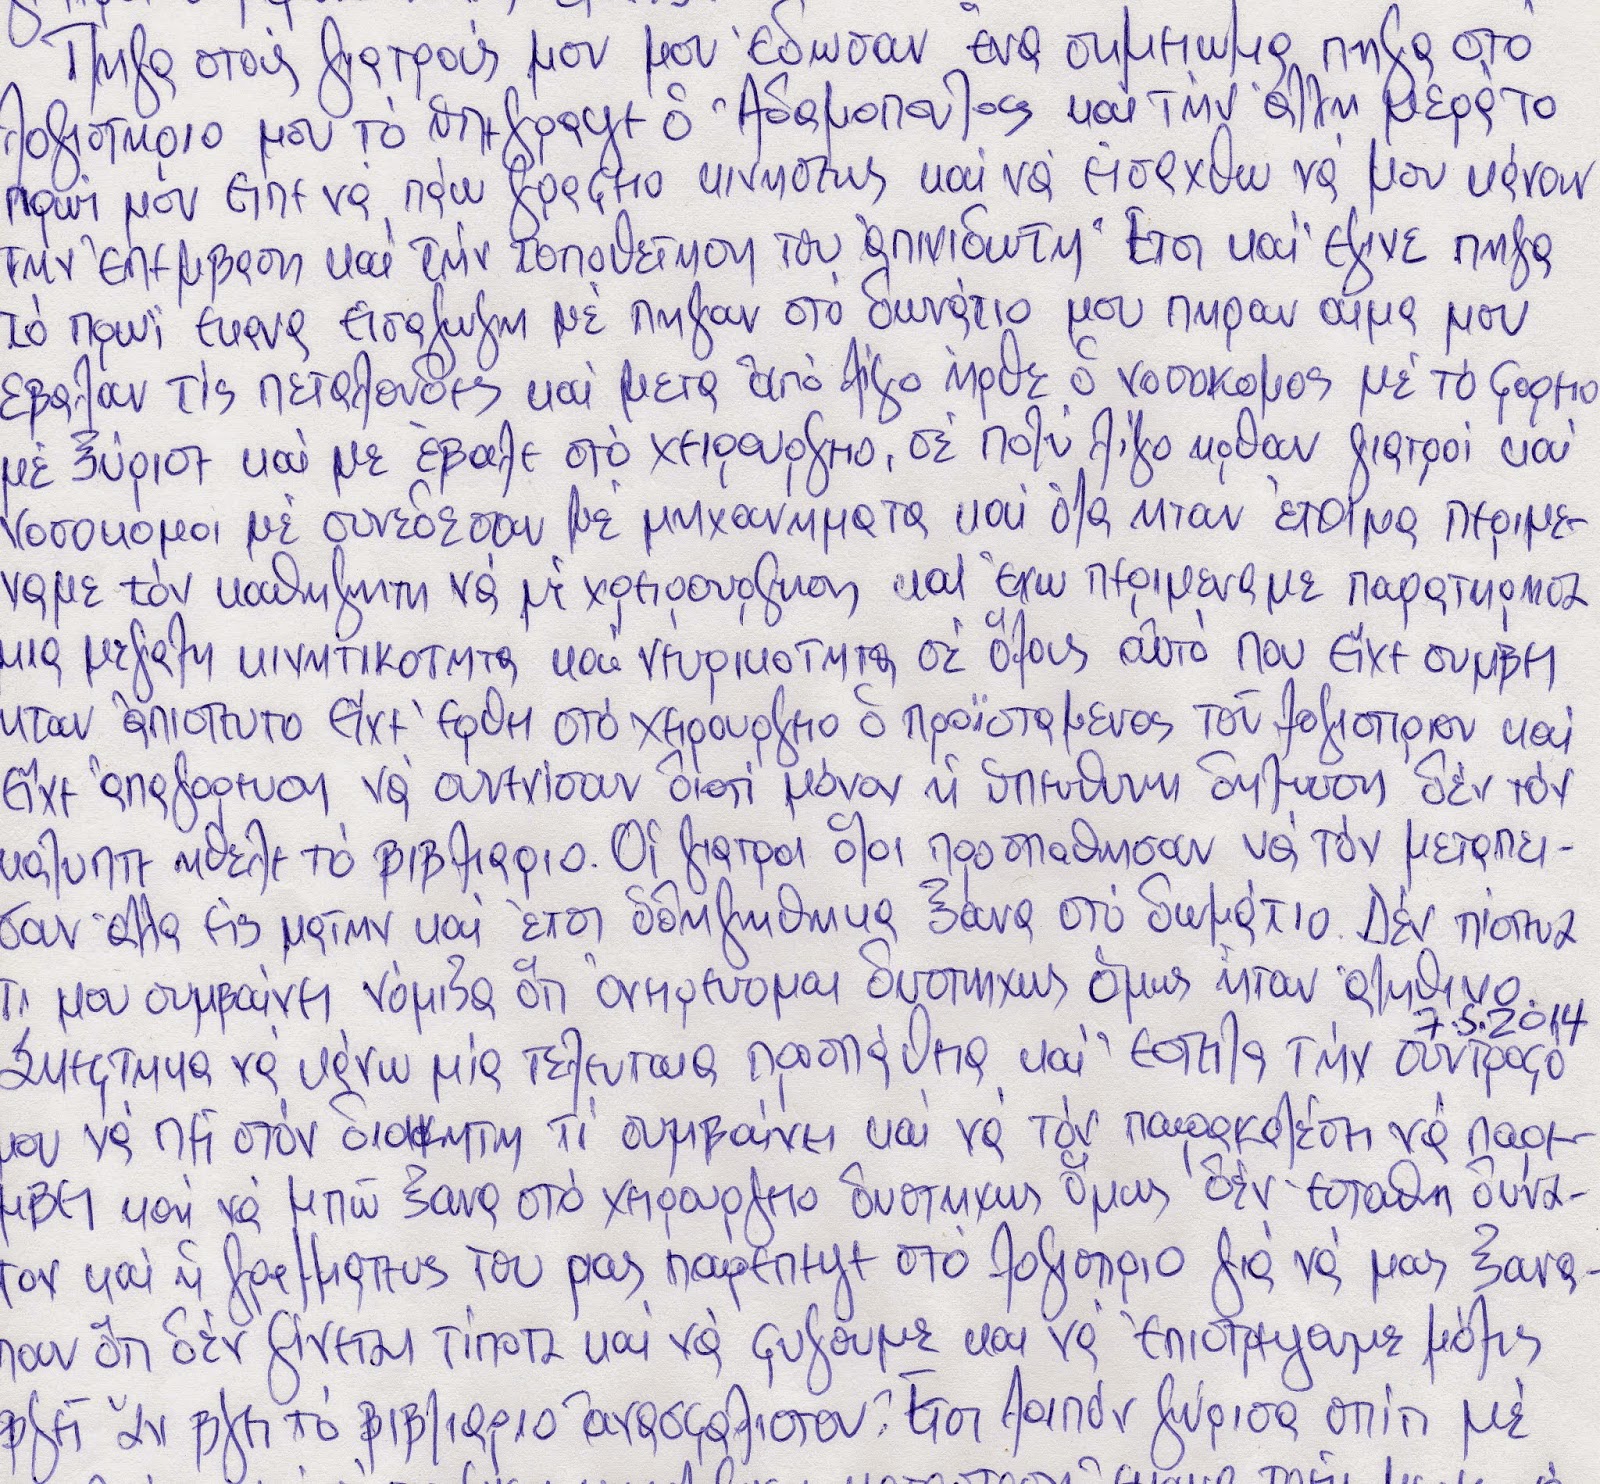 Πηγα στούς γιατρούς μου μου έδωσαν ένα σημειωμα πηγα στό
λογιστηριο μου τό υπεγραψε ό Άδαμοπουλος και τήν άλλη μέρα το
πρωί μου είπε νά πάω γραφειο κινησεως καί νά είσαχθω νά μου κάνουν
την έπεμβαση καί τήν τοποθετηση του άπινιδωτη Έτσι καί έγινε πηγα
τό πρωί εκανα είσαγωγη μέ πηγαν στό δωμάτιο μου πηραν αιμα μου
εβαλαν τίς πεταλουδες καί μετα άπό λίγο ήρθε ό νοσοκομος μέ τό φορειο
μέ ξύρισε καί με έβαλε στό χειρουργειο, σέ πολύ λίγο ηρθαν γιατροί καί
νοσοκομοι μέ συνεδεσαν μέ μηχανηματα καί όλα ηταν έτοιμα περιμε-
ναμε τόν καθηγητη νά μέ χειρουργηση καί ένω περιμεναμε παρατηρησα
μια μεγαλη κινητικοτητα καί νευρικοτητα σέ όλους αύτό που είχε συμβει
ηταν άπιστευτο είχε έρθει στό χειρουργειο ό προϊσταμενος τού λογιστηριου καί
είχε άπαγορευση νά συνενίσουν διοτί μόνον ή ύπευθυνη δηλωση δέν τόν
καλυπτε ηθελε τό βιβλιαριο. Οί γιατροί όλοι προσπαθησαν νά τόν μεταπει-
σουν άλλα είς ματην καί έτσι όδηγηθηκα ξανα στό δωμάτιο. Δέν πίστευα
τι μου συμβαίνει νόμιζα ότι όνειρευομαι δυστηχως όμως ήταν άληθινο.
7.5.2014
Σκεφτηκα νά κάνω μία τελευταια προσπάθεια καί έστειλα τήν συντροφό
μου νά πεί στόν διοικητη τί συμβαίνει καί νά τόν παρακαλέσει νά παρε-
μβει καί νά μπώ ξανα στό χειρουργειο δυστηχως όμως δέν έσταθη δυνα-
τον καί ή γραμματευς του μας παρεπεμψε στό λογιστηριο γιά νά μας ξανα-
πουν ότι δέν γίνεται τίποτα καί νά φυγουμε και νά έπιστρεψουμε μόλις
βγεί άν βγει τό βιβλιαριο άνασφαλιστου. Έτσι λοιπόν γύρισα σπίτι μέ